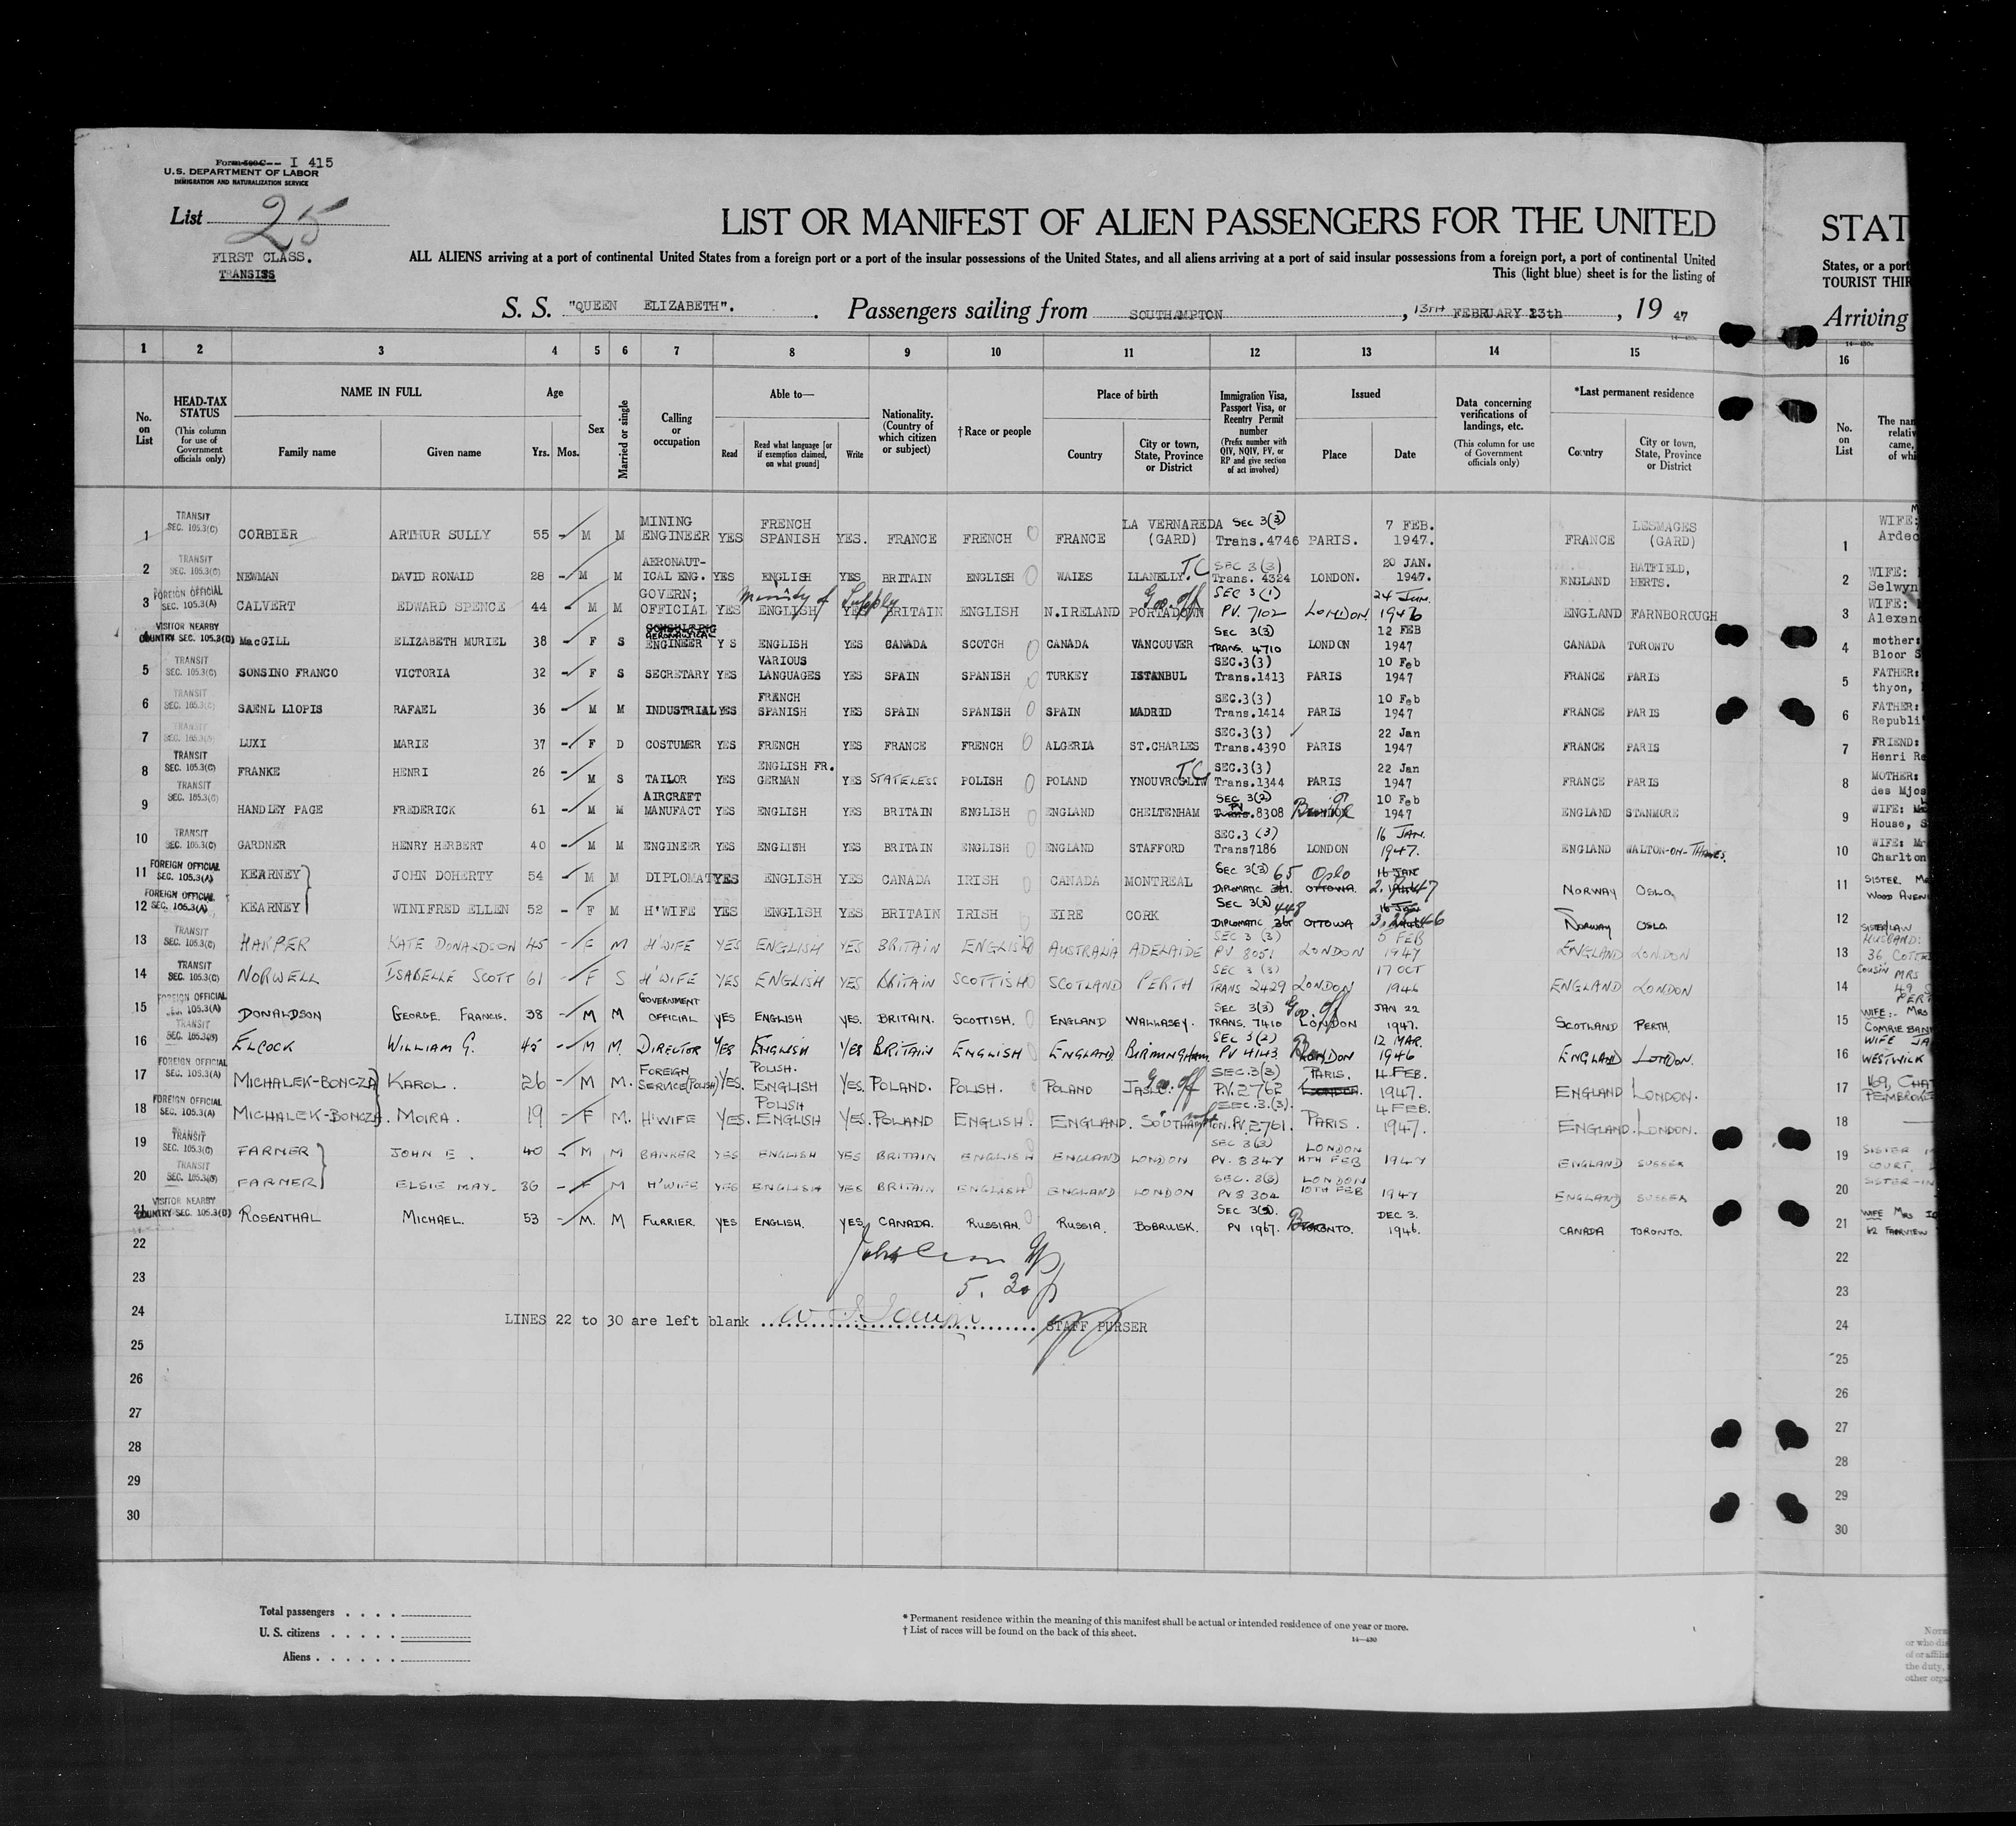 Form 500 C-- I 415
U.S. DEPARTMENT OF LABOR
IMMIGRATION AND NATURALIZATION SERVICE
List 25
FIRST CLASS.
LIST OR MANIFEST OF ALIEN PASSENGERS FOR THE UNITED
STAT
ALL ALIENS arriving at a port of continental United States from a foreign port or a port of the insular possessions of the United States, and all aliens arriving at a port of said insular possessions from a foreign port, a port of continental United
States, or a port
This (light blue) sheet is for the listing of
TOURIST THIR
S. S. "QUEEN ELIZABETH". Passengers sailing from SOUTHAMPTON, 13TH FEBRUARY 13th, 19 47
Arriving
1 2 3 4 5 6 7 8 9 10 11 12 13 14 15 16
No. on List
HEAD-TAX STATUS (This column for use of Government officials only)
NAME IN FULL Family name Given name
Age Yrs. Mos.
Sex
Married or single
Calling or occupation
Able to— Read Read what language [or if exemption claimed, on what ground] Write
Nationality. (Country of which citizen or subject)
†Race or people
Place of birth Country City or town, State, Province or District
Immigration Visa, Passport Visa, or Reentry Permit number (Prefix number with QIV, NQIV, PV, or RP and give section of act involved)
Issued Place Date
Data concerning verifications of landings, etc. (This column for use of Government officials only)
*Last permanent residence Country City or town, State, Province or District
No. on List
1 TRANSIT SEC. 105.3(C) CORBIER ARTHUR SULLY 55 M M MINING ENGINEER YES FRENCH SPANISH YES. FRANCE FRENCH FRANCE LA VERNAREDA (GARD) SEC 3(3) Trans.4746 PARIS. 7 FEB. 1947. FRANCE LESMAGES (GARD) 1 WIFE: Ardec
2 TRANSIT SEC. 105.3(C) NEWMAN DAVID RONALD 28 M M AERONAUT-ICAL ENG. YES ENGLISH YES BRITAIN ENGLISH WALES LLANELLY. TC SEC 3(3) Trans. 4324 LONDON. 20 JAN. 1947. ENGLAND HATFIELD, HERTS. 2 WIFE: Selwyn
3 FOREIGN OFFICIAL SEC. 105.3(A) CALVERT EDWARD SPENCE 44 M M GOVERN; OFFICIAL YES Ministry of Supply ENGLISH YES BRITAIN ENGLISH N.IRELAND PORTADOWN Gov. off SEC 3(1) PV. 7102 LONDON 24 JUN. 1946 ENGLAND FARNBOROUGH 3 WIFE: Alexan
4 VISITOR NEARBY COUNTRY SEC. 105.3(D) MacGILL ELIZABETH MURIEL 38 F S CONSULTING AERONAUTICAL ENGINEER Y S ENGLISH YES CANADA SCOTCH CANADA VANCOUVER SEC 3(3) TRANS. 4710 LONDON 12 FEB 1947 CANADA TORONTO 4 mother: Bloor S
5 TRANSIT SEC. 105.3(C) SONSINO FRANCO VICTORIA 32 F S SECRETARY YES VARIOUS LANGUAGES YES SPAIN SPANISH TURKEY ISTANBUL SEC.3(3) Trans.1413 PARIS 10 Feb 1947 FRANCE PARIS 5 FATHER: thyon,
6 TRANSIT SEC. 105.3(C) SAENL LlOPIS RAFAEL 36 M M INDUSTRIAL YES FRENCH SPANISH YES SPAIN SPANISH SPAIN MADRID SEC.3(3) Trans.1414 PARIS 10 Feb 1947 FRANCE PARIS 6 FATHER: Republi
7 TRANSIT LUXI MARIE 37 F D COSTUMER YES FRENCH YES FRANCE FRENCH ALGERIA ST.CHARLES SEC.3(3) Trans.4390 PARIS 22 Jan 1947 FRANCE PARIS 7 FRIEND: Henri Re
8 TRANSIT SEC. 105.3(C) FRANKE HENRI 26 M S TAILOR YES ENGLISH FR. GERMAN YES STATELESS POLISH POLAND TC SEC.3(3) Trans.1344 PARIS 22 Jan 1947 FRANCE PARIS 8 MOTHER: des Mjos
9 TRANSIT SEC. 105.3(C) HANDLEY PAGE FREDERICK 61 M M AIRCRAFT MANUFACT YES ENGLISH YES BRITAIN ENGLISH ENGLAND CHELTENHAM SEC 3(2) PV Trans.8308 10 Feb 1947 ENGLAND STANMORE 9 WIFE: House, S
10 TRANSIT SEC. 105.3(C) GARDNER HENRY HERBERT 40 M M ENGINEER YES ENGLISH YES BRITAIN ENGLISH ENGLAND STAFFORD SEC.3 (3) Trans7186 LONDON 16 JAN. 1947. ENGLAND WALTON-ON-THAMES 10 WIFE: Charlton
11 FOREIGN OFFICIAL SEC. 105.3(A) KEARNEY JOHN DOHERTY 54 M M DIPLOMAT YES ENGLISH YES CANADA IRISH CANADA MONTREAL SEC 3(3) 65 DIPLOMATIC Oslo OTTOWA 16 JAN NORWAY OSLO 11 SISTER WOOD AVEN
12 FOREIGN OFFICIAL SEC. 105.3(A) KEARNEY WINIFRED ELLEN 52 F M H'WIFE YES ENGLISH YES BRITAIN IRISH EIRE CORK SEC 3(3) 448 DIPLOMATIC OTTOWA 16 JAN NORWAY OSLO 12 SISTER LAW
13 TRANSIT SEC. 105.3(C) HARPER KATE DONALDSON 45 F M H'WIFE YES ENGLISH YES BRITAIN ENGLISH AUSTRALIA ADELAIDE SEC 3 (3) PV 8051 LONDON 5 FEB 1947 ENGLAND LONDON 13 HUSBAND: 36
14 TRANSIT SEC. 105.3(C) NORWELL ISABELLE SCOTT 61 F S H'WIFE YES ENGLISH YES BRITAIN SCOTTISH SCOTLAND PERTH SEC 3 (3) TRANS 2429 LONDON 17 OCT 1946 ENGLAND LONDON 14 COUSIN MRS 49 PERT
15 FOREIGN OFFICIAL SEC. 105.3(A) DONALDSON GEORGE FRANCIS. 38 M M GOVERNMENT OFFICIAL YES ENGLISH YES. BRITAIN. SCOTTISH. ENGLAND WALLASEY. SEC 3(3) TRANS. 7410 Gov. off LONDON JAN 22 1947. SCOTLAND PERTH. 15 WIFE:- MRS COMRIE BAN
16 TRANSIT ELCOCK WILLIAM G. 45 M M. DIRECTOR YES ENGLISH YES BRITAIN ENGLISH ENGLAND. BIRMINGHAM. SEC 3(2) PV 4143 LONDON 12 MAR. 1946 ENGLAND LONDON. 16 WIFE JA WESTWICK
17 FOREIGN OFFICIAL SEC. 105.3(A) MICHALEK-BONCZA KAROL. 26 M M. FOREIGN SERVICE(POLISH) YES. POLISH. ENGLISH YES. POLAND. POLISH. POLAND JASLO. Gov. off SEC.3(3) P.V. 2762 PARIS. LONDON. 4 FEB. 1947. ENGLAND LONDON. 17 169, CHAT PEMBROKE
18 FOREIGN OFFICIAL SEC. 105.3(A) MICHALEK-BONCZA. MOIRA. 19 F M. H'WIFE YES. POLISH ENGLISH YES. POLAND ENGLISH. ENGLAND. SOUTHAMPTON. wife SEC.3.(3). P.V. 2761. PARIS. 4 FEB. 1947. ENGLAND. LONDON. 18
19 TRANSIT SEC. 105.3(C) FARMER JOHN E. 40 M M BANKER YES ENGLISH YES BRITAIN ENGLISH ENGLAND LONDON SEC 3(3) PV. 8347 LONDON 11TH FEB 1947 ENGLAND SUSSEX 19 SISTER COURT,
20 TRANSIT FARMER ELSIE MAY. 36 F M H'WIFE YES ENGLISH YES BRITAIN ENGLISH ENGLAND LONDON SEC. 3(3) PV 8304 LONDON 10TH FEB 1947 ENGLAND SUSSEX 20 SISTER-IN
21 VISITOR NEARBY COUNTRY SEC. 105.3(D) ROSENTHAL MICHAEL. 53 M. M FURRIER YES ENGLISH. YES CANADA. RUSSIAN. RUSSIA. BOBRUISK. PV 1967. TORONTO. DEC 3. 1946. CANADA TORONTO. 21 WIFE MRS 62 FAIRVIEW
22 22
23 5. 30 23
24 LINES 22 to 30 are left blank STAFF PURSER 24
25 25
26 26
27 27
28 28
29 29
30 30
Total passengers . . . .
U. S. citizens . . . . .
Aliens . . . . . .
* Permanent residence within the meaning of this manifest shall be actual or intended residence of one year or more.
† List of races will be found on the back of this sheet.
14—430
or who
of or affilia
the duty,
other orga